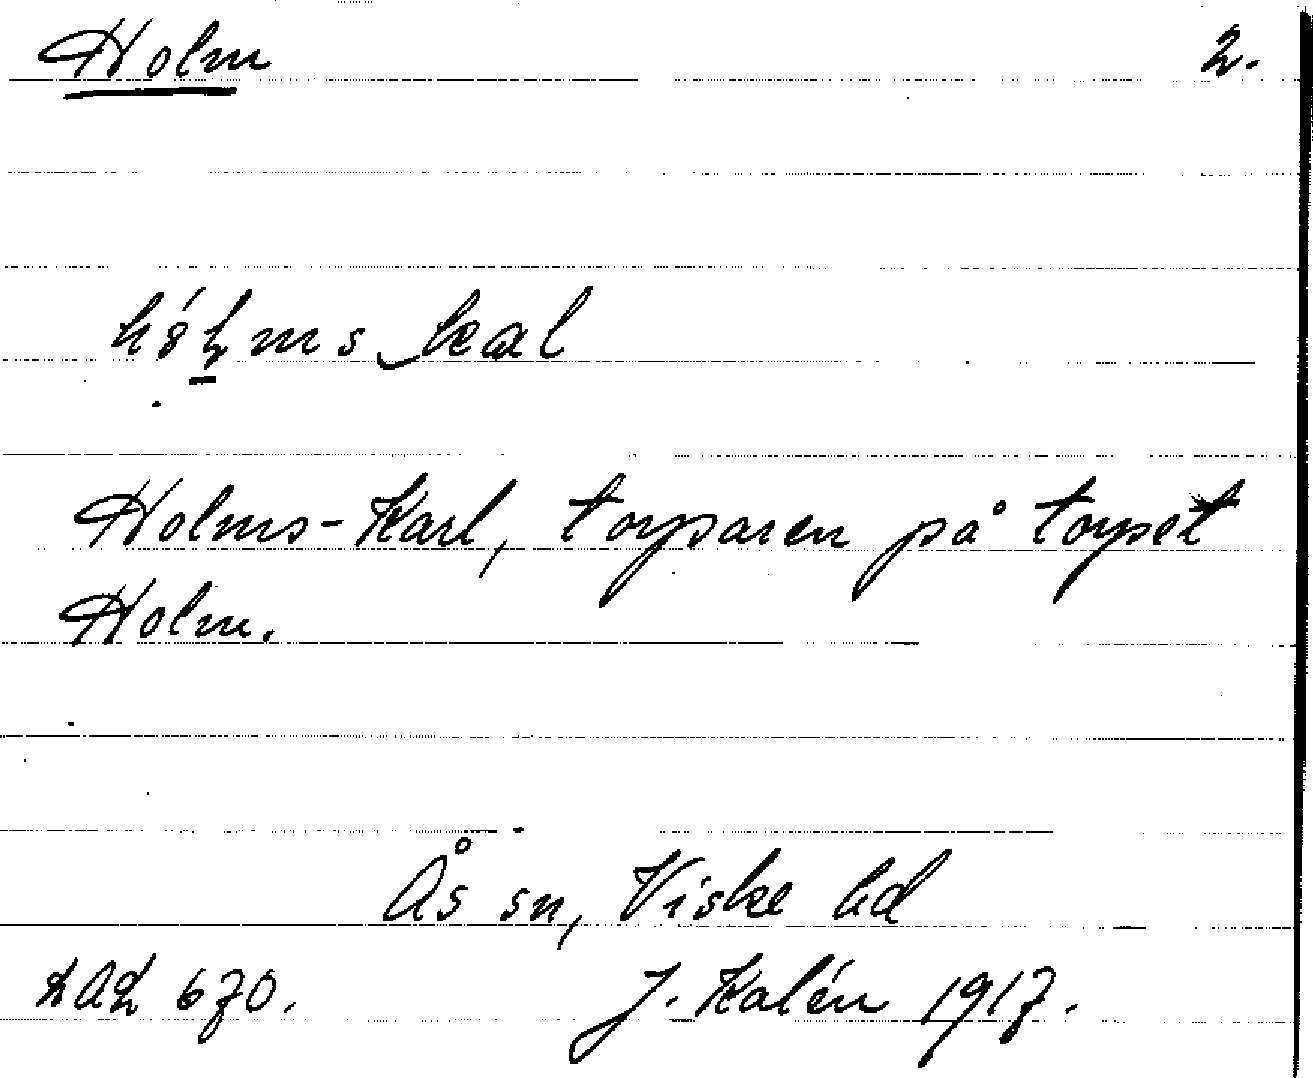 Holm 2.
Holms-Karl, torparen på torpet
Holm.
Ås sn, Viske hd
LAL 670. J. Kalén 1917.